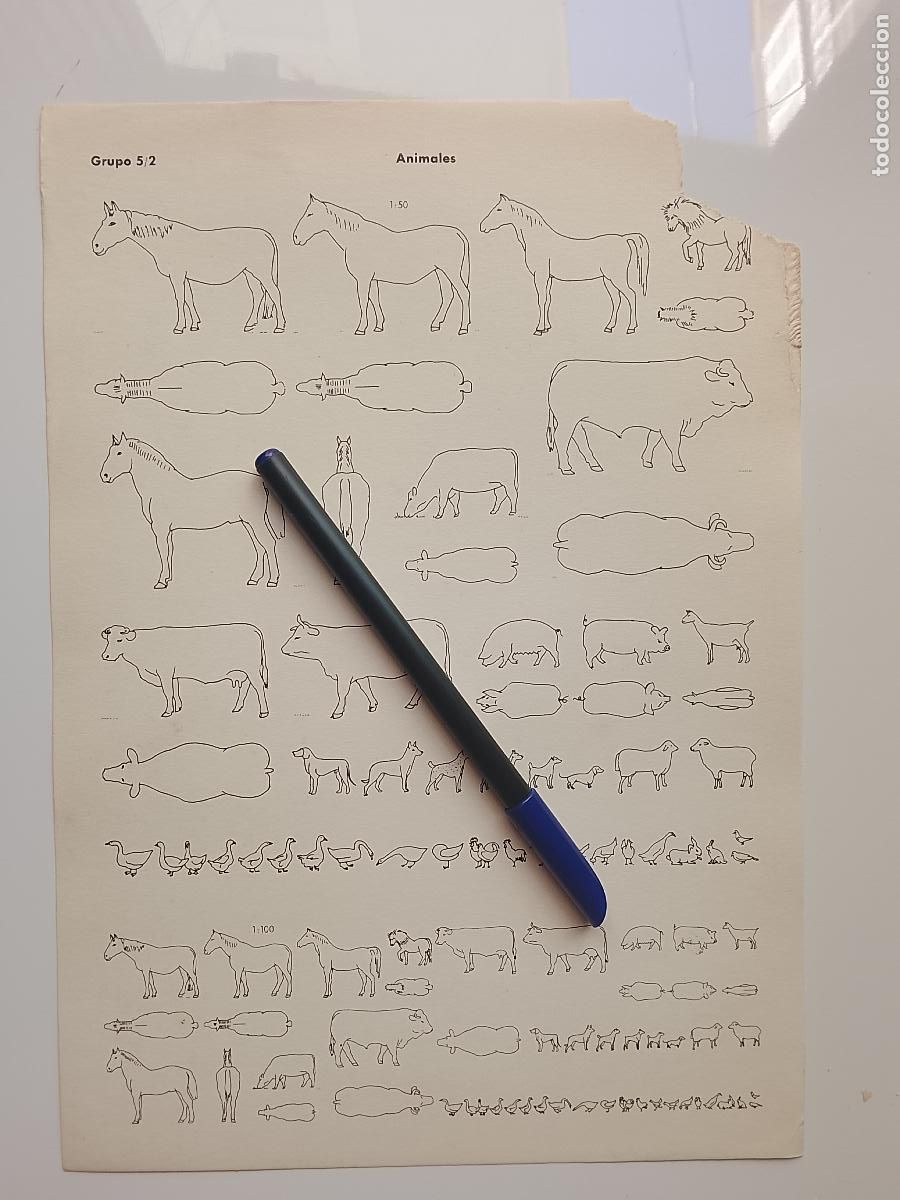 todocoleccion
Grupo 5/2
Animales
1:50
1:100